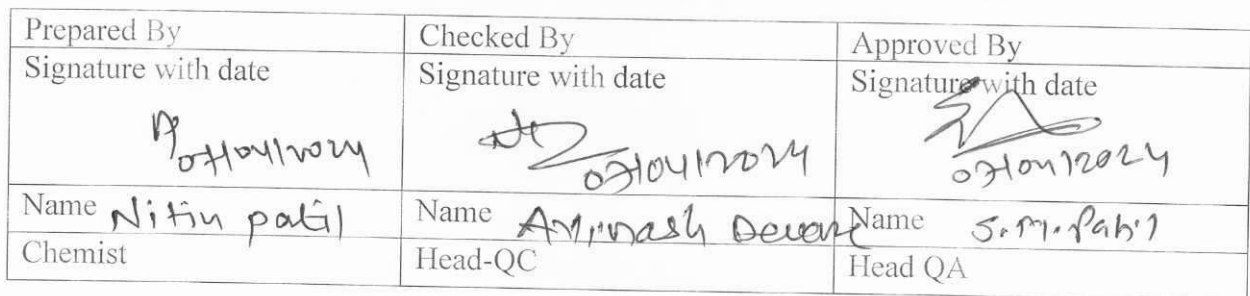 Prepared By Checked By Approved By
Signature with date Signature with date Signature with date
07/04/2024 07/04/2024 07/04/2024
Name Nitin patil Name Avinash Deware Name S.M.Patil
Chemist Head-QC Head QA